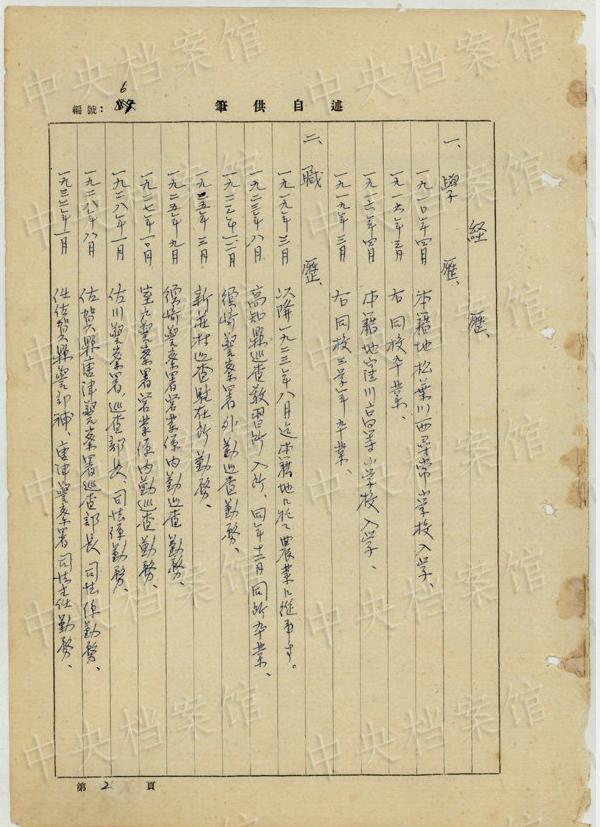 編號: 6
筆供自述
経歴、
一、學歴、
一九一〇年四月 本籍地松葉川西尋常小学校入学、
一九一六年三月 右同校卒業、
一九一六年四月 本籍地窪川高等小学校入学、
一九一九年三月 右同校三学年卒業、
二、職歴、
一九一九年三月 以降一九二三年八月迄本籍地ニ於テ農業ニ従事ス。
一九二三年八月 高知縣巡査教習所入所、同年十二月同所卒業、
一九二三年十二月 須崎警察署外勤巡査勤務、
一九二五年三月 新荘村巡査駐在所勤務、
一九二五年九月 須崎警察署営業係内勤巡査勤務、
一九二七年一〇月 室戸警察署営業係内勤巡査勤務、
一九二八年一月 佐川警察署、巡査部長、司法係勤務、
一九二八年八月 佐賀縣唐津警察署巡査部長司法係勤務、
一九三二年一月 任佐賀縣警部補 唐津警察署司法主任勤務、
第 2 頁
中央档案馆